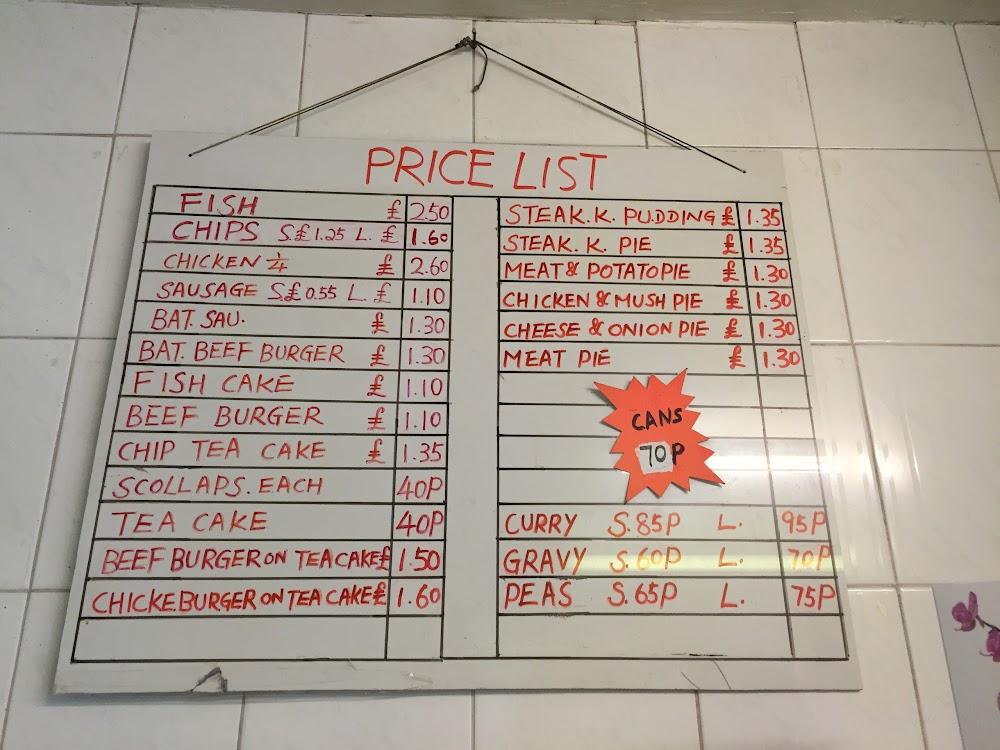 PRICE LIST
FISH £ 2.50
CHIPS S.£1.25 L. £ 1.60
CHICKEN 1/4 £ 2.60
SAUSAGE S£0.55 L. £ 1.10
BAT. SAU. £ 1.30
BAT. BEEF BURGER £ 1.30
FISH CAKE £ 1.10
BEEF BURGER £ 1.10
CHIP TEA CAKE £ 1.35
SCOLLAPS. EACH 40P
TEA CAKE 40P
BEEF BURGER ON TEA CAKE £ 1.50
CHICKE.BURGER ON TEA CAKE £ 1.60
STEAK. K. PUDDING £ 1.35
STEAK. K. PIE £ 1.35
MEAT & POTATO PIE £ 1.30
CHICKEN & MUSH PIE £ 1.30
CHEESE & ONION PIE £ 1.30
MEAT PIE £ 1.30
CANS
70P
CURRY S. 85P L. 95P
GRAVY S. 60P L. 70P
PEAS S. 65P L. 75P